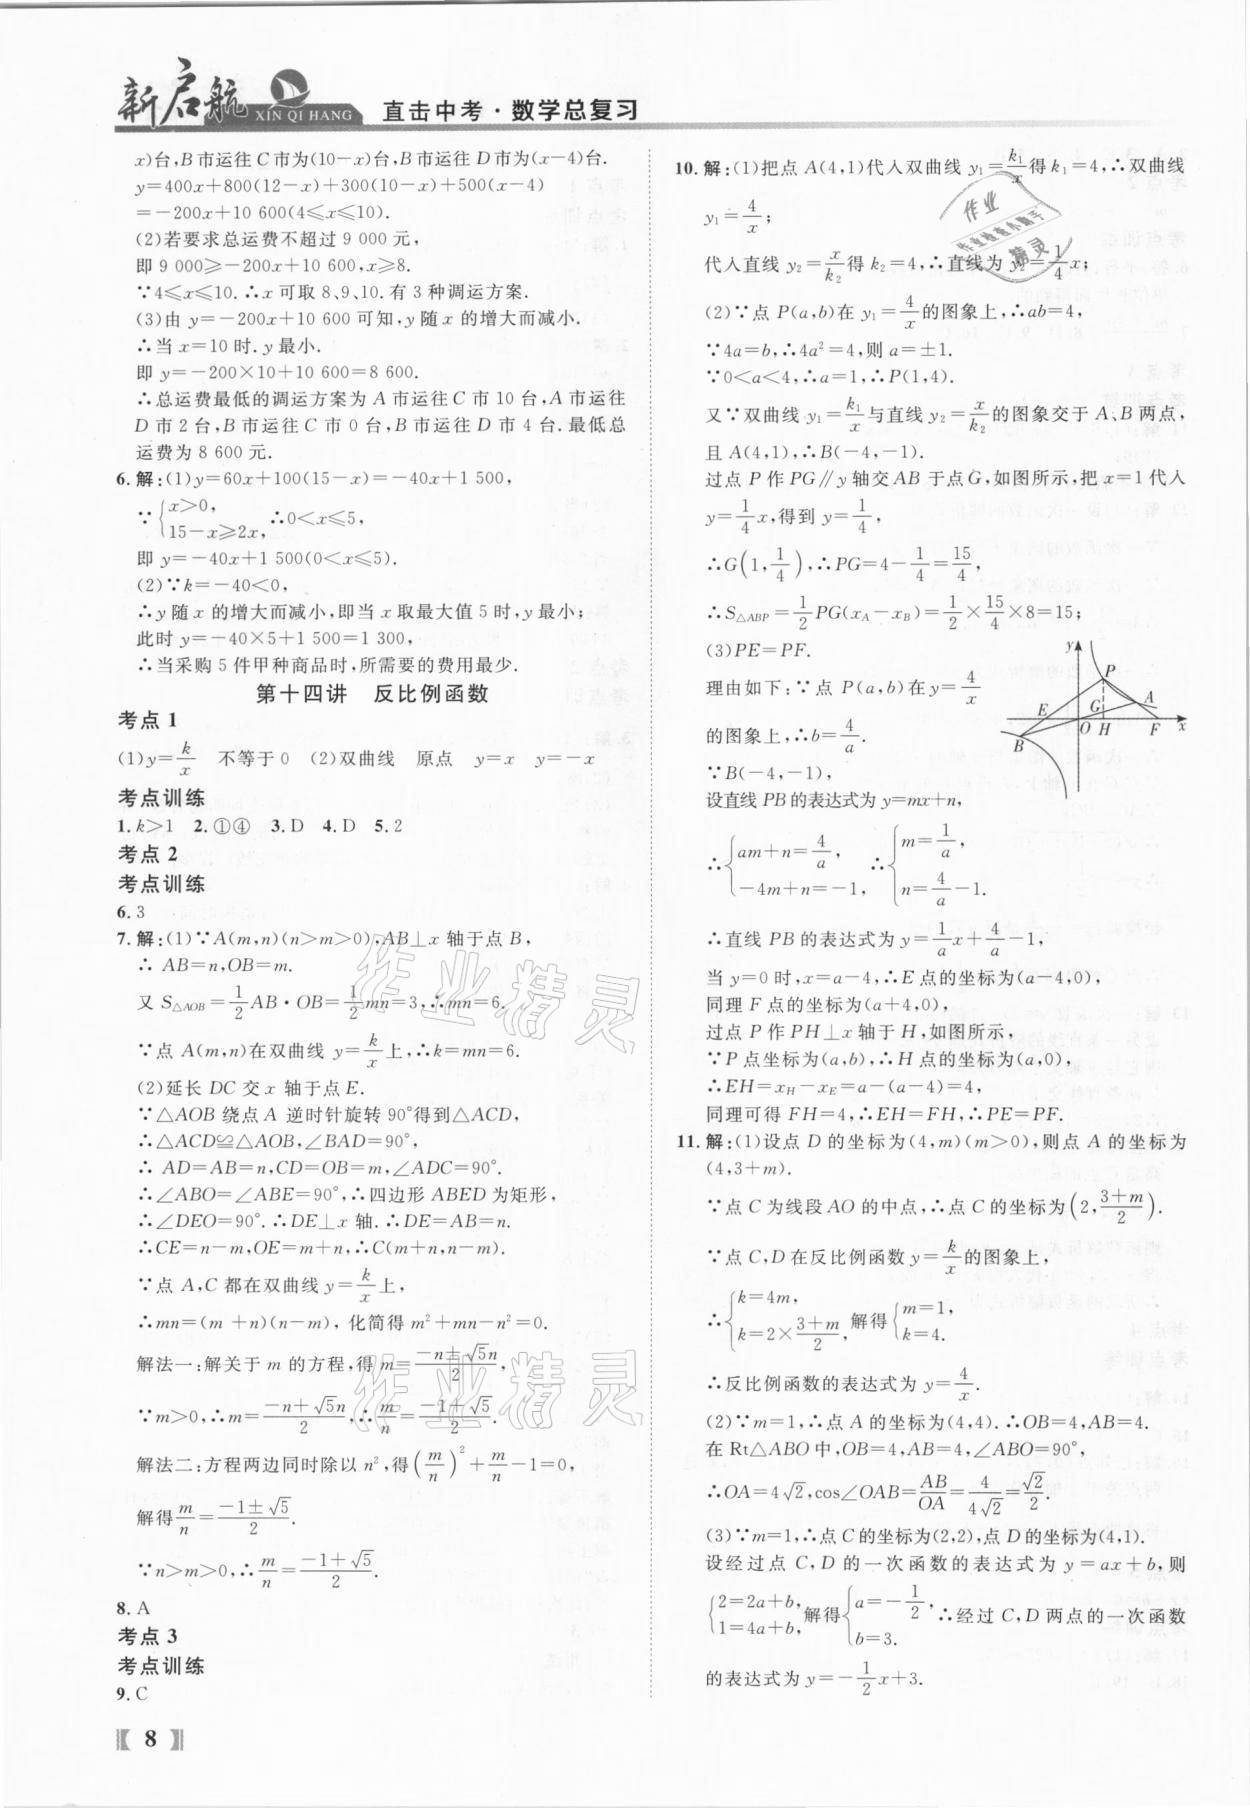 新启航
XIN QI HANG
直击中考·数学总复习
x)台,B市运往C市为(10-x)台,B市运往D市为(x-4)台.
y=400x+800(12-x)+300(10-x)+500(x-4)
=-200x+10 600(4≤x≤10).
(2)若要求总运费不超过9 000元,
即9 000≥-200x+10 600,x≥8.
∵4≤x≤10.∴x可取8、9、10.有3种调运方案.
(3)由y=-200x+10 600可知,y随x的增大而减小.
∴当x=10时.y最小.
即y=-200×10+10 600=8 600.
∴总运费最低的调运方案为A市运往C市10台,A市运往
D市2台,B市运往C市0台,B市运往D市4台.最低总
运费为8 600元.
6.解:(1)y=60x+100(15-x)=-40x+1 500,
∵{x>0, 15-x≥2x, ∴0<x≤5,
即y=-40x+1 500(0<x≤5).
(2)∵k=-40<0,
∴y随x的增大而减小,即当x取最大值5时,y最小;
此时y=-40×5+1 500=1 300,
∴当采购5件甲种商品时,所需要的费用最少.
第十四讲 反比例函数
考点1
(1)y=k/x 不等于0 (2)双曲线 原点 y=x y=-x
考点训练
1.k>1 2.①④ 3.D 4.D 5.2
考点2
考点训练
6.3
7.解:(1)∵A(m,n)(n>m>0),AB⊥x轴于点B,
∴ AB=n,OB=m.
又S△AOB=1/2AB·OB=1/2mn=3,∴mn=6.
∵点A(m,n)在双曲线y=k/x上,∴k=mn=6.
(2)延长DC交x轴于点E.
∵△AOB绕点A逆时针旋转90°得到△ACD,
∴△ACD≌△AOB,∠BAD=90°,
∴ AD=AB=n,CD=OB=m,∠ADC=90°.
∴∠ABO=∠ABE=90°,∴四边形ABED为矩形,
∴∠DEO=90°.∴DE⊥x轴.∴DE=AB=n.
∴CE=n-m,OE=m+n,∴C(m+n,n-m).
∵点A,C都在双曲线y=k/x上,
∴mn=(m+n)(n-m),化简得m²+mn-n²=0.
解法一:解关于m的方程,得m=(-n±√5n)/2.
∵m>0,∴m=(-n+√5n)/2.∴m/n=(-1+√5)/2.
解法二:方程两边同时除以n²,得(m/n)²+m/n-1=0,
解得m/n=(-1±√5)/2.
∵n>m>0,∴m/n=(-1+√5)/2.
8.A
考点3
考点训练
9.C
8
10.解:(1)把点A(4,1)代入双曲线y₁=k₁/x得k₁=4,∴双曲线
y₁=4/x;
代入直线y₂=x/k₂得k₂=4,∴直线为y₂=1/4x;
(2)∵点P(a,b)在y₁=4/x的图象上,∴ab=4,
∵4a=b,∴4a²=4,则a=±1.
∵0<a<4,∴a=1,∴P(1,4).
又∵双曲线y₁=k₁/x与直线y₂=x/k₂的图象交于A、B两点,
且A(4,1),∴B(-4,-1).
过点P作PG∥y轴交AB于点G,如图所示,把x=1代入
y=1/4x,得到y=1/4,
∴G(1,1/4),∴PG=4-1/4=15/4,
∴S△ABP=1/2PG(xA-xB)=1/2×15/4×8=15;
(3)PE=PF.
理由如下:∵点P(a,b)在y=4/x
的图象上,∴b=4/a.
∵B(-4,-1),
y P A E G B O H F x
设直线PB的表达式为y=mx+n,
∴{am+n=4/a, -4m+n=-1, ∴{m=1/a, n=4/a-1.
∴直线PB的表达式为y=1/a x+4/a-1,
当y=0时,x=a-4,∴E点的坐标为(a-4,0),
同理F点的坐标为(a+4,0),
过点P作PH⊥x轴于H,如图所示,
∵P点坐标为(a,b),∴H点的坐标为(a,0),
∴EH=xH-xE=a-(a-4)=4,
同理可得FH=4,∴EH=FH,∴PE=PF.
11.解:(1)设点D的坐标为(4,m)(m>0),则点A的坐标为
(4,3+m).
∵点C为线段AO的中点,∴点C的坐标为(2,(3+m)/2).
∵点C,D在反比例函数y=k/x的图象上,
∴{k=4m, k=2×(3+m)/2, 解得{m=1, k=4.
∴反比例函数的表达式为y=4/x.
(2)∵m=1,∴点A的坐标为(4,4).∴OB=4,AB=4.
在Rt△ABO中,OB=4,AB=4,∠ABO=90°,
∴OA=4√2,cos∠OAB=AB/OA=4/4√2=√2/2.
(3)∵m=1,∴点C的坐标为(2,2),点D的坐标为(4,1).
设经过点C,D的一次函数的表达式为y=ax+b,则
{2=2a+b, 1=4a+b, 解得{a=-1/2, b=3. ∴经过C,D两点的一次函数
的表达式为y=-1/2x+3.
作业精灵
作业精灵
作业
精灵